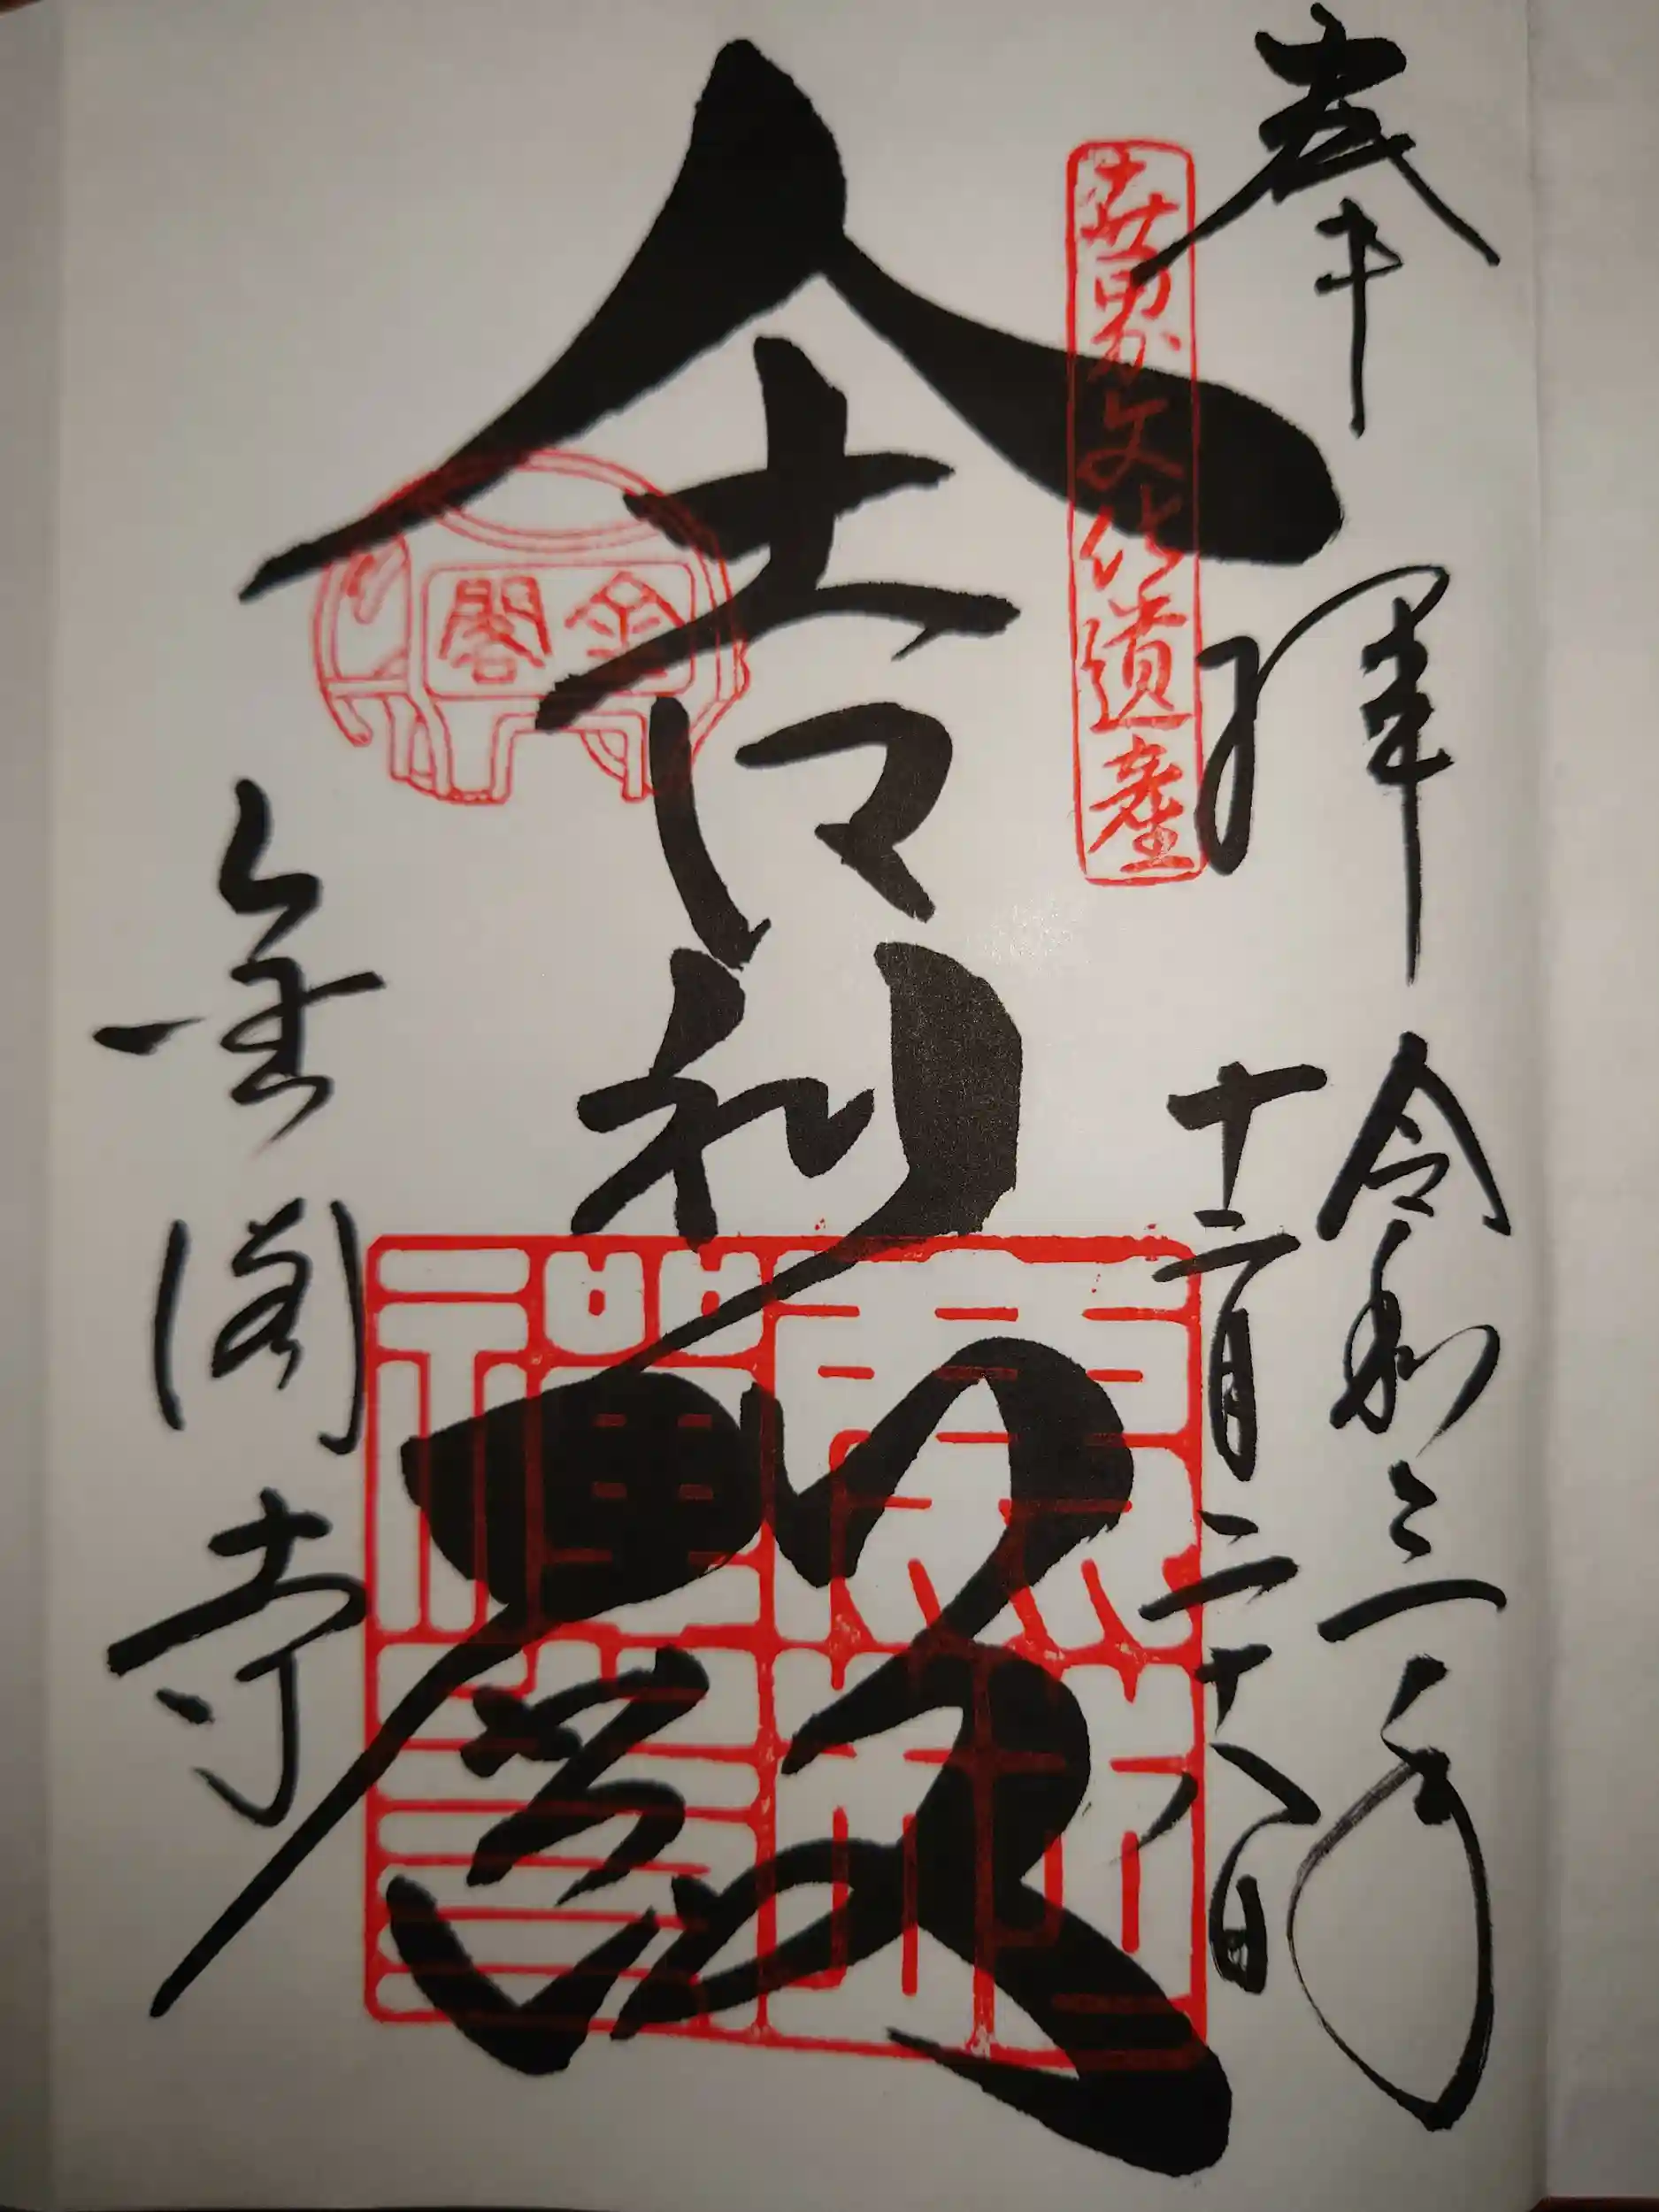 奉拝
令和三年
十二月二十八日
世界文化遺産
舎利殿
金閣
鹿苑禪寺
金閣寺